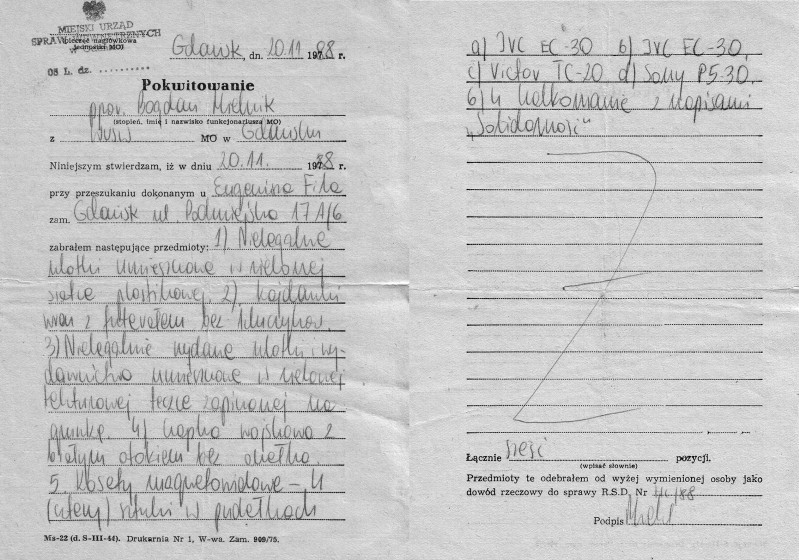 MIEJSKI URZĄD
SPRAW WEWNĘTRZNYCH
(pieczęć nagłówkowa
jednostki MO)
Gdańsk, dn. 20.11 1988 r.
05 L. dz. ..........
Pokwitowanie
ppor. Bogdan Mielnik
(stopień, imię i nazwisko funkcjonariusza MO)
z WUSW MO w Gdańsku
Niniejszym stwierdzam, iż w dniu 20.11. 1988 r.
przy przeszukaniu dokonanym u Eugeniusza Fila
zam. Gdańsk ul. Podmiejska 17A/6
zabrałem następujące przedmioty: 1) Nielegalne
ulotki umieszczone w zielonej
siatce plastikowej, 2) kajdanki
wraz z futerałem bez kluczyków.
3) Nielegalnie wydane ulotki i wy-
dawnictwa umieszczone w zielonej
tekturowej teczce zapinanej na
gumkę 4) czapka wojskowa z
białym otokiem bez orzełka
5. Kasety magnetowidowe – 4
(cztery) sztuki w pudełkach
Ms-22 (d. S-III-44). Drukarnia Nr 1, W-wa. Zam. 909/75.
a) JVC EC-30 b) JVC EC-30,
c) Victor TC-20 d) Sony P5-30,
6) 4 z napisami
„Solidarność"
Łącznie sześć pozycji.
(wpisać słownie)
Przedmioty te odebrałem od wyżej wymienionej osoby jako
dowód rzeczowy do sprawy R.S.D. Nr /88
Podpis